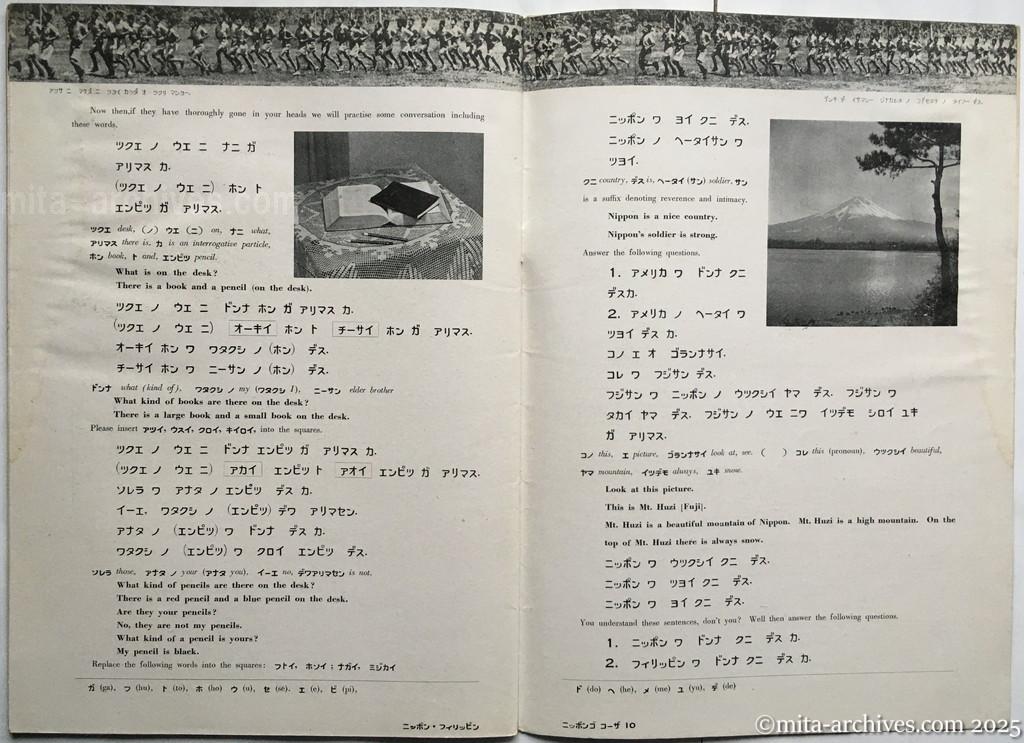 Now then,if they have thoroughly gone in your heads we will practise some conversation including
these words.
ツクエ ノ ウエ ニ ナニ ガ
アリマス カ.
(ツクエ ノ ウエ ニ) ホン ト
エンピツ ガ アリマス.
ツクエ desk, (ノ) ウエ (ニ) on, ナニ what,
アリマス there is, カ is an interrogative particle,
ホン book, ト and, エンピツ pencil.
What is on the desk?
There is a book and a pencil (on the desk).
ツクエ ノ ウエ ニ ドンナ ホン ガ アリマス カ.
(ツクエ ノ ウエ ニ) オーキイ ホン ト チーサイ ホン ガ アリマス.
オーキイ ホン ワ ワタクシ ノ (ホン) デス.
チーサイ ホン ワ ニーサン ノ (ホン) デス.
ドンナ what (kind of), ワタクシ ノ my (ワタクシ I), ニーサン elder brother
What kind of books are there on the desk?
There is a large book and a small book on the desk.
Please insert アツイ, ウスイ, クロイ, キイロイ, into the squares.
ツクエ ノ ウエ ニ ドンナ エンピツ ガ アリマス カ.
(ツクエ ノ ウエ ニ) アカイ エンピツ ト アオイ エンピツ ガ アリマス.
ソレラ ワ アナタ ノ エンピツ デス カ.
イーエ, ワタクシ ノ (エンピツ) デワ アリマセン.
アナタ ノ (エンピツ) ワ ドンナ デス カ.
ワタクシ ノ (エンピツ) ワ クロイ エンピツ デス.
ソレラ those, アナタ ノ your (アナタ you), イーエ no, デワアリマセン is not.
What kind of pencils are there on the desk?
There is a red pencil and a blue pencil on the desk.
Are they your pencils?
No, they are not my pencils.
What kind of a pencil is yours?
My pencil is black.
Replace the following words into the squares: フトイ, ホソイ; ナガイ, ミジカイ
ガ (ga), フ (hu), ト (to), ホ (ho) ウ (u), セ (se), エ (e), ピ (pi),
ニッポン・フィリッピン
ニッポン ワ ヨイ クニ デス.
ニッポン ノ ヘータイサン ワ
ツヨイ.
クニ country, デス is, ヘータイ (サン) soldier, サン
is a suffix denoting reverence and intimacy.
Nippon is a nice country.
Nippon's soldier is strong.
Answer the following questions.
1. アメリカ ワ ドンナ クニ
デスカ.
2. アメリカ ノ ヘータイ ワ
ツヨイ デス カ.
コノ エ オ ゴランナサイ.
コレ ワ フジサン デス.
フジサン ワ ニッポン ノ ウツクシイ ヤマ デス. フジサン ワ
タカイ ヤマ デス. フジサン ノ ウエ ニワ イツデモ シロイ ユキ
ガ アリマス.
コノ this, エ picture, ゴランナサイ look at, see. ( ) コレ this (pronoun), ウツクシイ beautiful,
ヤマ mountain, イツデモ always, ユキ snow.
Look at this picture.
This is Mt. Huzi [Fuji].
Mt. Huzi is a beautiful mountain of Nippon. Mt. Huzi is a high mountain. On the
top of Mt. Huzi there is always snow.
ニッポン ワ ウツクシイ クニ デス.
ニッポン ワ ツヨイ クニ デス.
ニッポン ワ ヨイ クニ デス.
You understand these sentences, don't you? Well then answer the following questions.
1. ニッポン ワ ドンナ クニ デス カ.
2. フィリッピン ワ ドンナ クニ デス カ.
ド (do) ヘ (he), メ (me) ユ (yu), デ (de)
ニッポンゴ コーザ 10
mita-archives.com
©mita-archives.com 2025